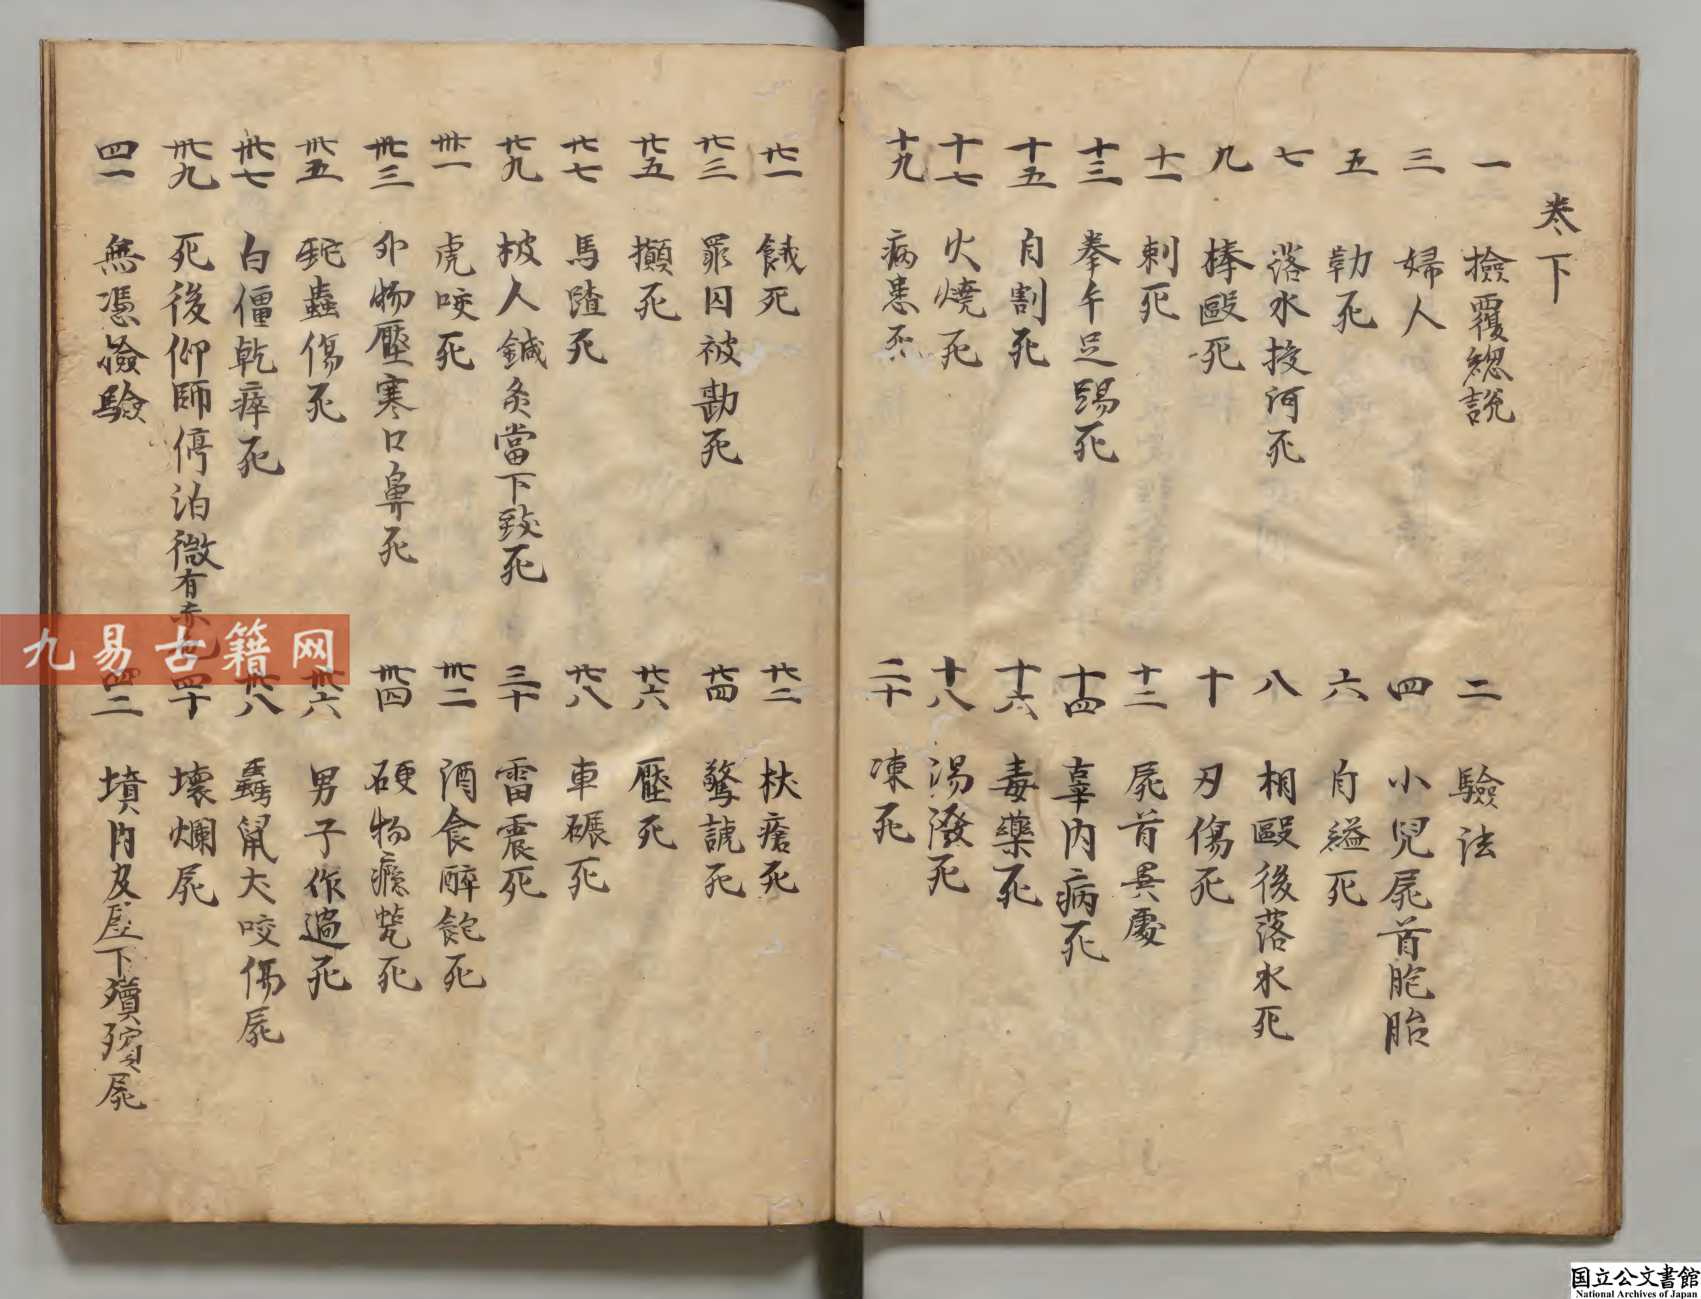 卷下
一 撿覆總說
二 驗法
三 婦人
四 小兒屍首胞胎
五 勒死
六 自縊死
七 落水投河死
八 相毆後落水死
九 棒毆死
十 刃傷死
十一 刺死
十二 屍首異處
十三 拳手足踢死
十四 辜內病死
十五 自割死
十六 毒藥死
十七 火燒死
十八 湯潑死
十九 病患死
二十 凍死
廿一 餓死
廿二 杖瘡死
廿三 罪囚被勘死
廿四 驚諕死
廿五 攧死
廿六 壓死
廿七 馬踏死
廿八 車碾死
廿九 被人鍼灸當下致死
三十 雷震死
卅一 虎咬死
卅二 酒食醉飽死
卅三 外物壓塞口鼻死
卅四 硬物癮㽄死
卅五 蛇蟲傷死
卅六 男子作過死
卅七 白僵乾瘁死
卅八 蟲鼠犬咬傷屍
卅九 死後仰師停泊微有赤色
四十 壞爛屍
四一 無憑撿驗
四二 墳內及屋下殯殯屍
九易古籍网
国立公文書館
National Archives of Japan